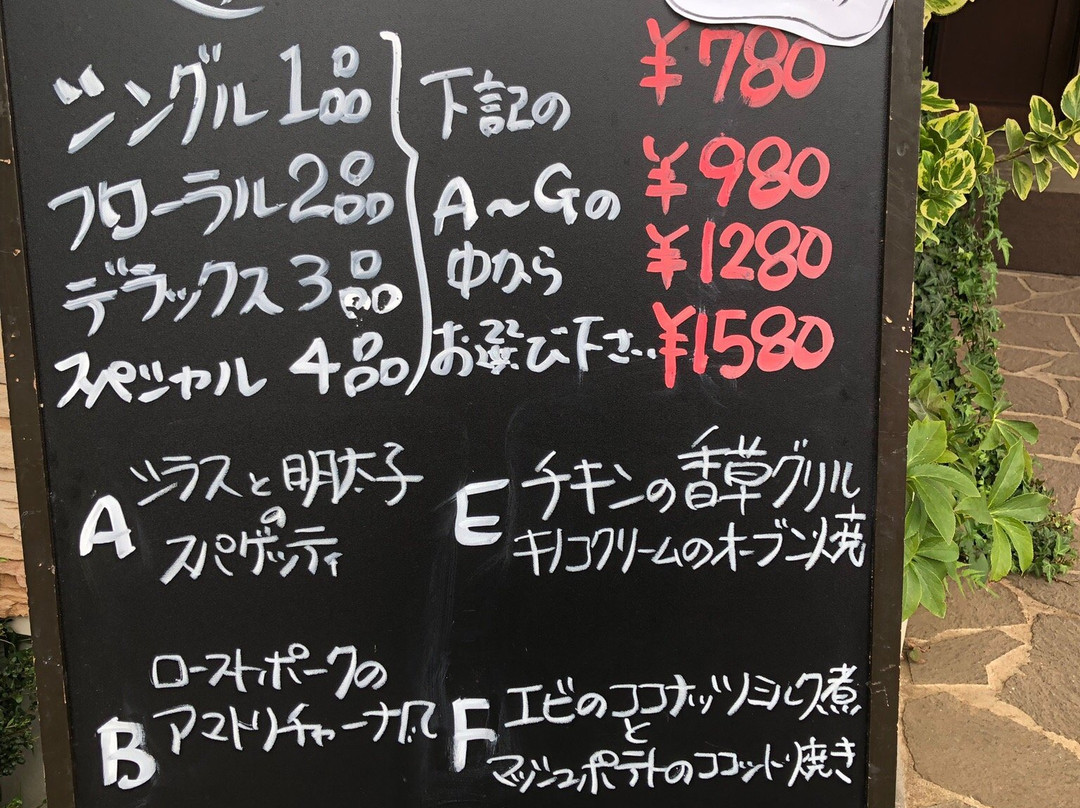 シングル 1品 下記の ¥780
フローラル 2品 A～Gの ¥980
デラックス 3品 中から ¥1280
スペシャル 4品 お選び下さい ¥1580
A シラスと明太子
の
スパゲッティ
E チキンの香草グリル
キノコクリームのオーブン焼
B ローストポークの
アマトリチャーナ
F エビのココナッツミルク煮
と
マッシュポテトのココット焼き